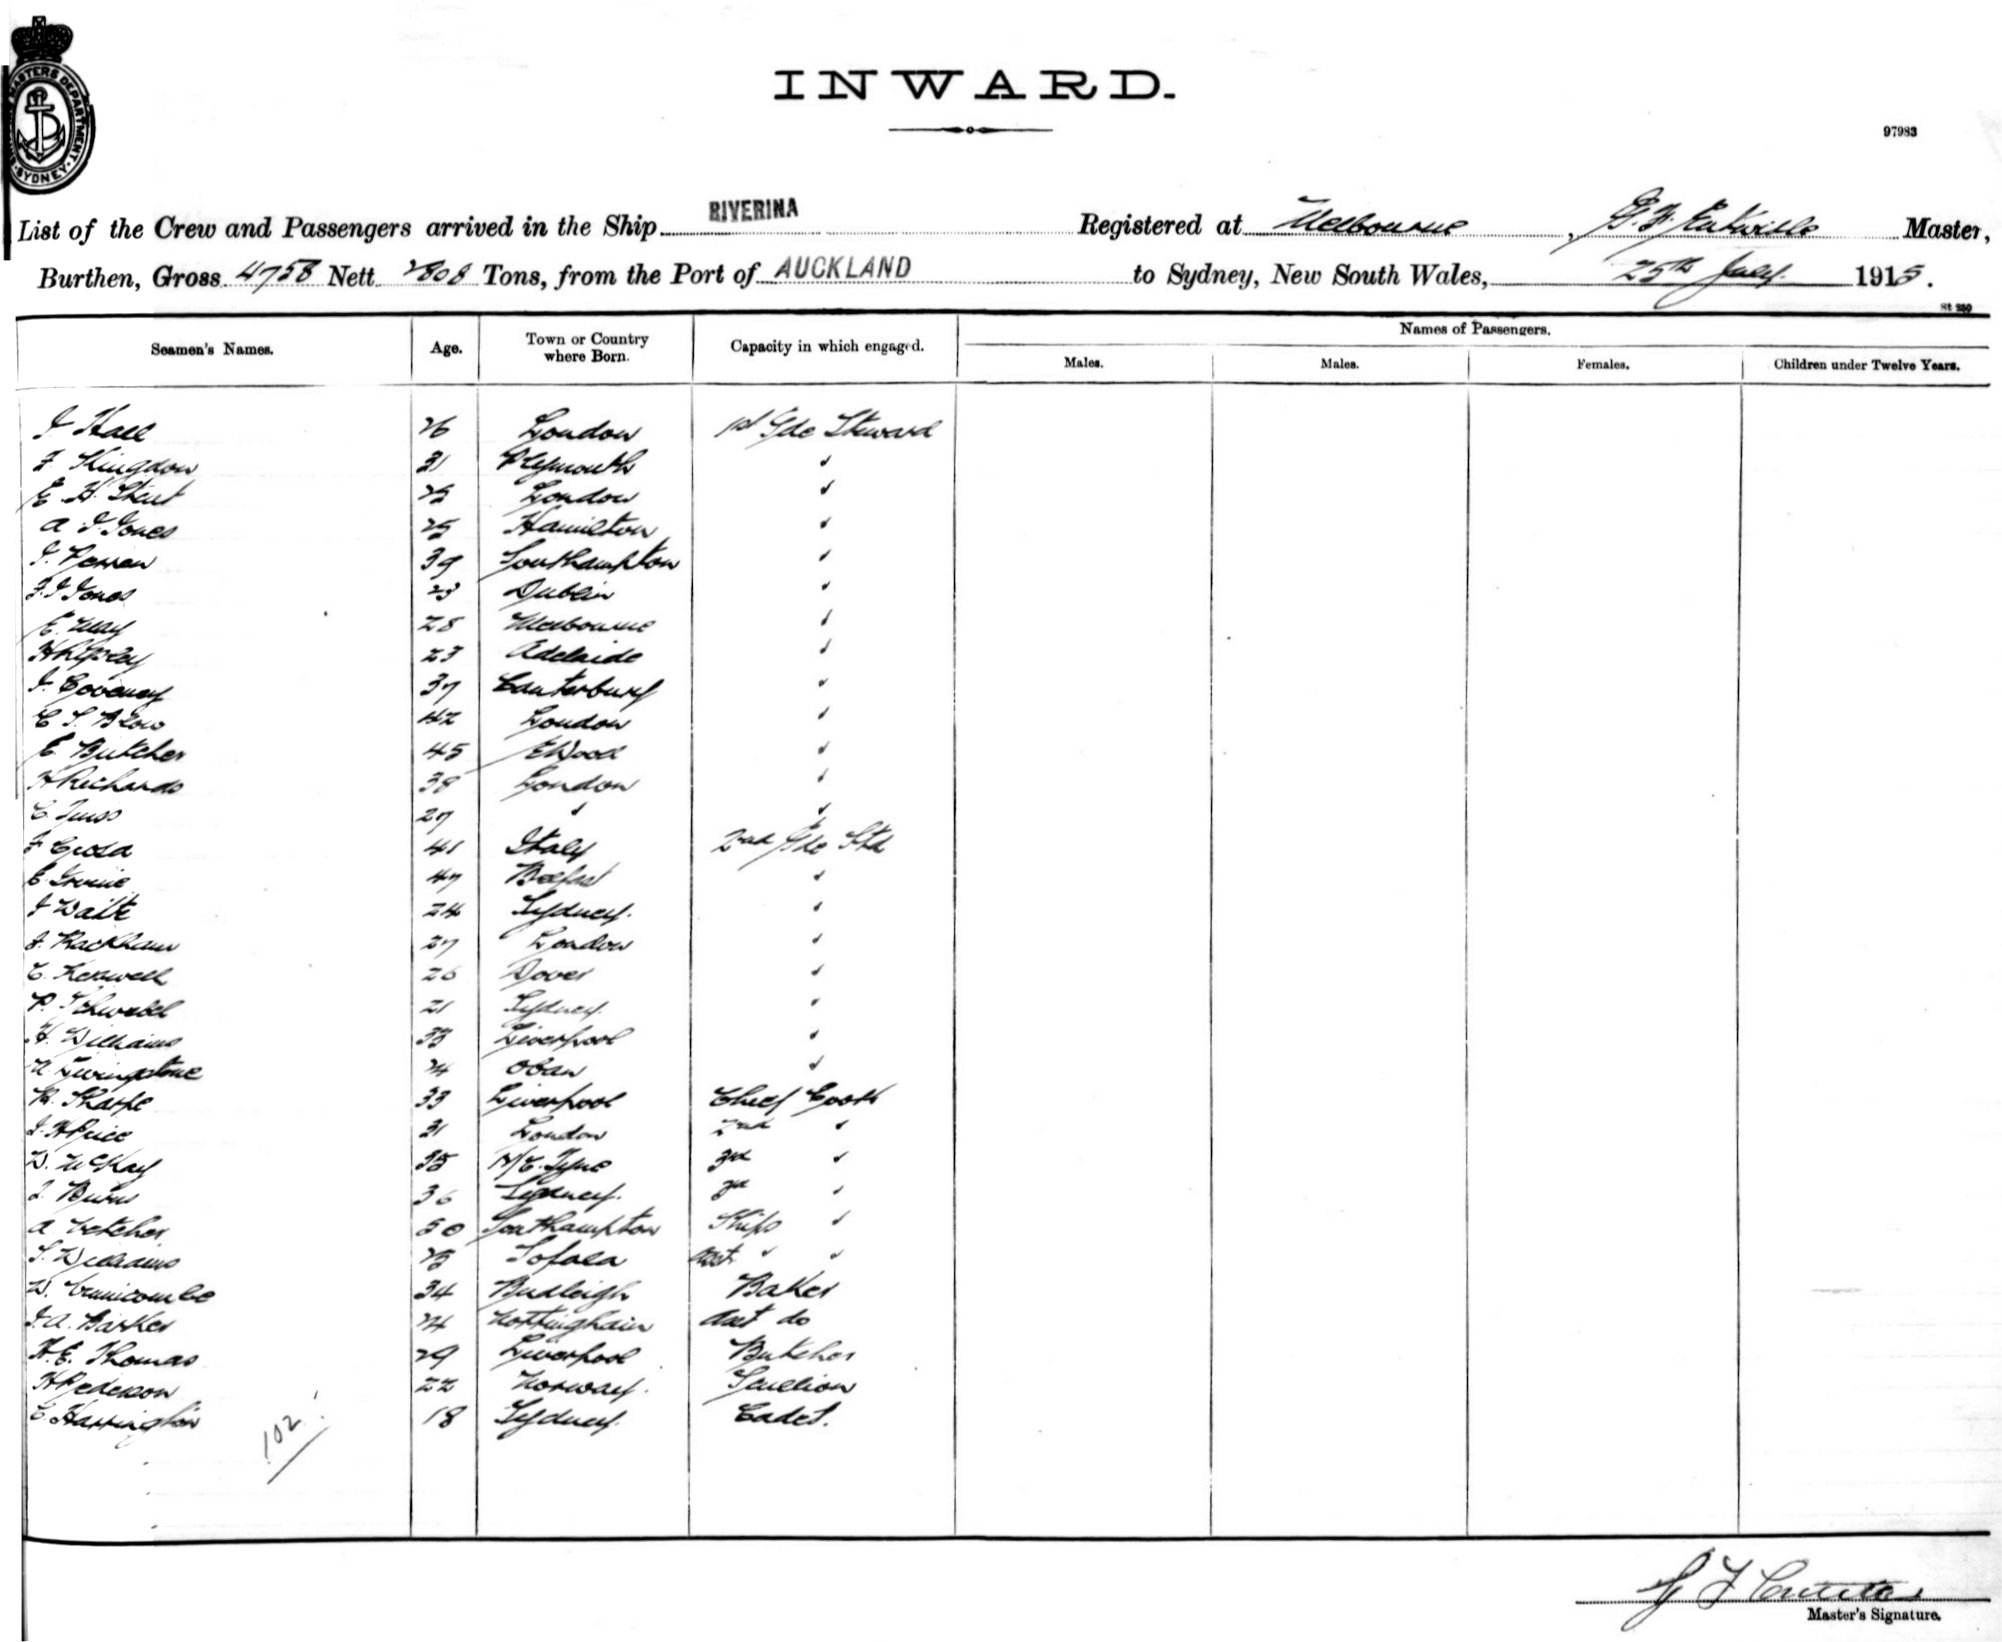 MASTERS DEPARTMENT
SYDNEY
INWARD.
97983
List of the Crew and Passengers arrived in the Ship RIVERINA Registered at Melbourne, Master,
Burthen, Gross 4758 Nett 2808 Tons, from the Port of AUCKLAND to Sydney, New South Wales, 25th July 1915.
St 259
Seamen's Names. Age. Town or Country where Born. Capacity in which engaged. Names of Passengers.
Males. Males. Females. Children under Twelve Years.
J Hall 26 London 1st Gde Steward
F Kingdon 31 Plymouth "
E. H. London "
A J. Jones 25 Hamilton "
J. 39 Southampton "
F. J Jones 23 Dublin "
E. May 28 Melbourne "
H Ripley 23 Adelaide "
J. Coveney 37 Canterbury "
C S. Blow 42 London "
E Butcher 45 "
H Richards 38 London "
C. 27 " "
F 41 Italy 2nd Gde Std
E. Irvine 47 Belfast "
J Waite 24 Sydney. "
F. Rackham 27 London "
C. 26 Dover "
P. Schwebel 21 Sydney. "
H. Williams 33 Liverpool "
A Livingstone 24 Oban "
Sharpe 33 Liverpool Chief Cook
J. H Price 31 London 2nd "
D. McKay 35 N/C. Tyne 3rd "
J Burns 36 Sydney. 3rd "
A 50 Southampton Ships "
S. Williams 23 Sofala Asst " "
W. 34 Budleigh Baker
J. A. Barker 24 Nottingham Asst do
H. E. Thomas 29 Liverpool Butcher
H Pederson 22 Norway. Scullion
C Harrington 18 Sydney. Cadet.
102
Master's Signature.